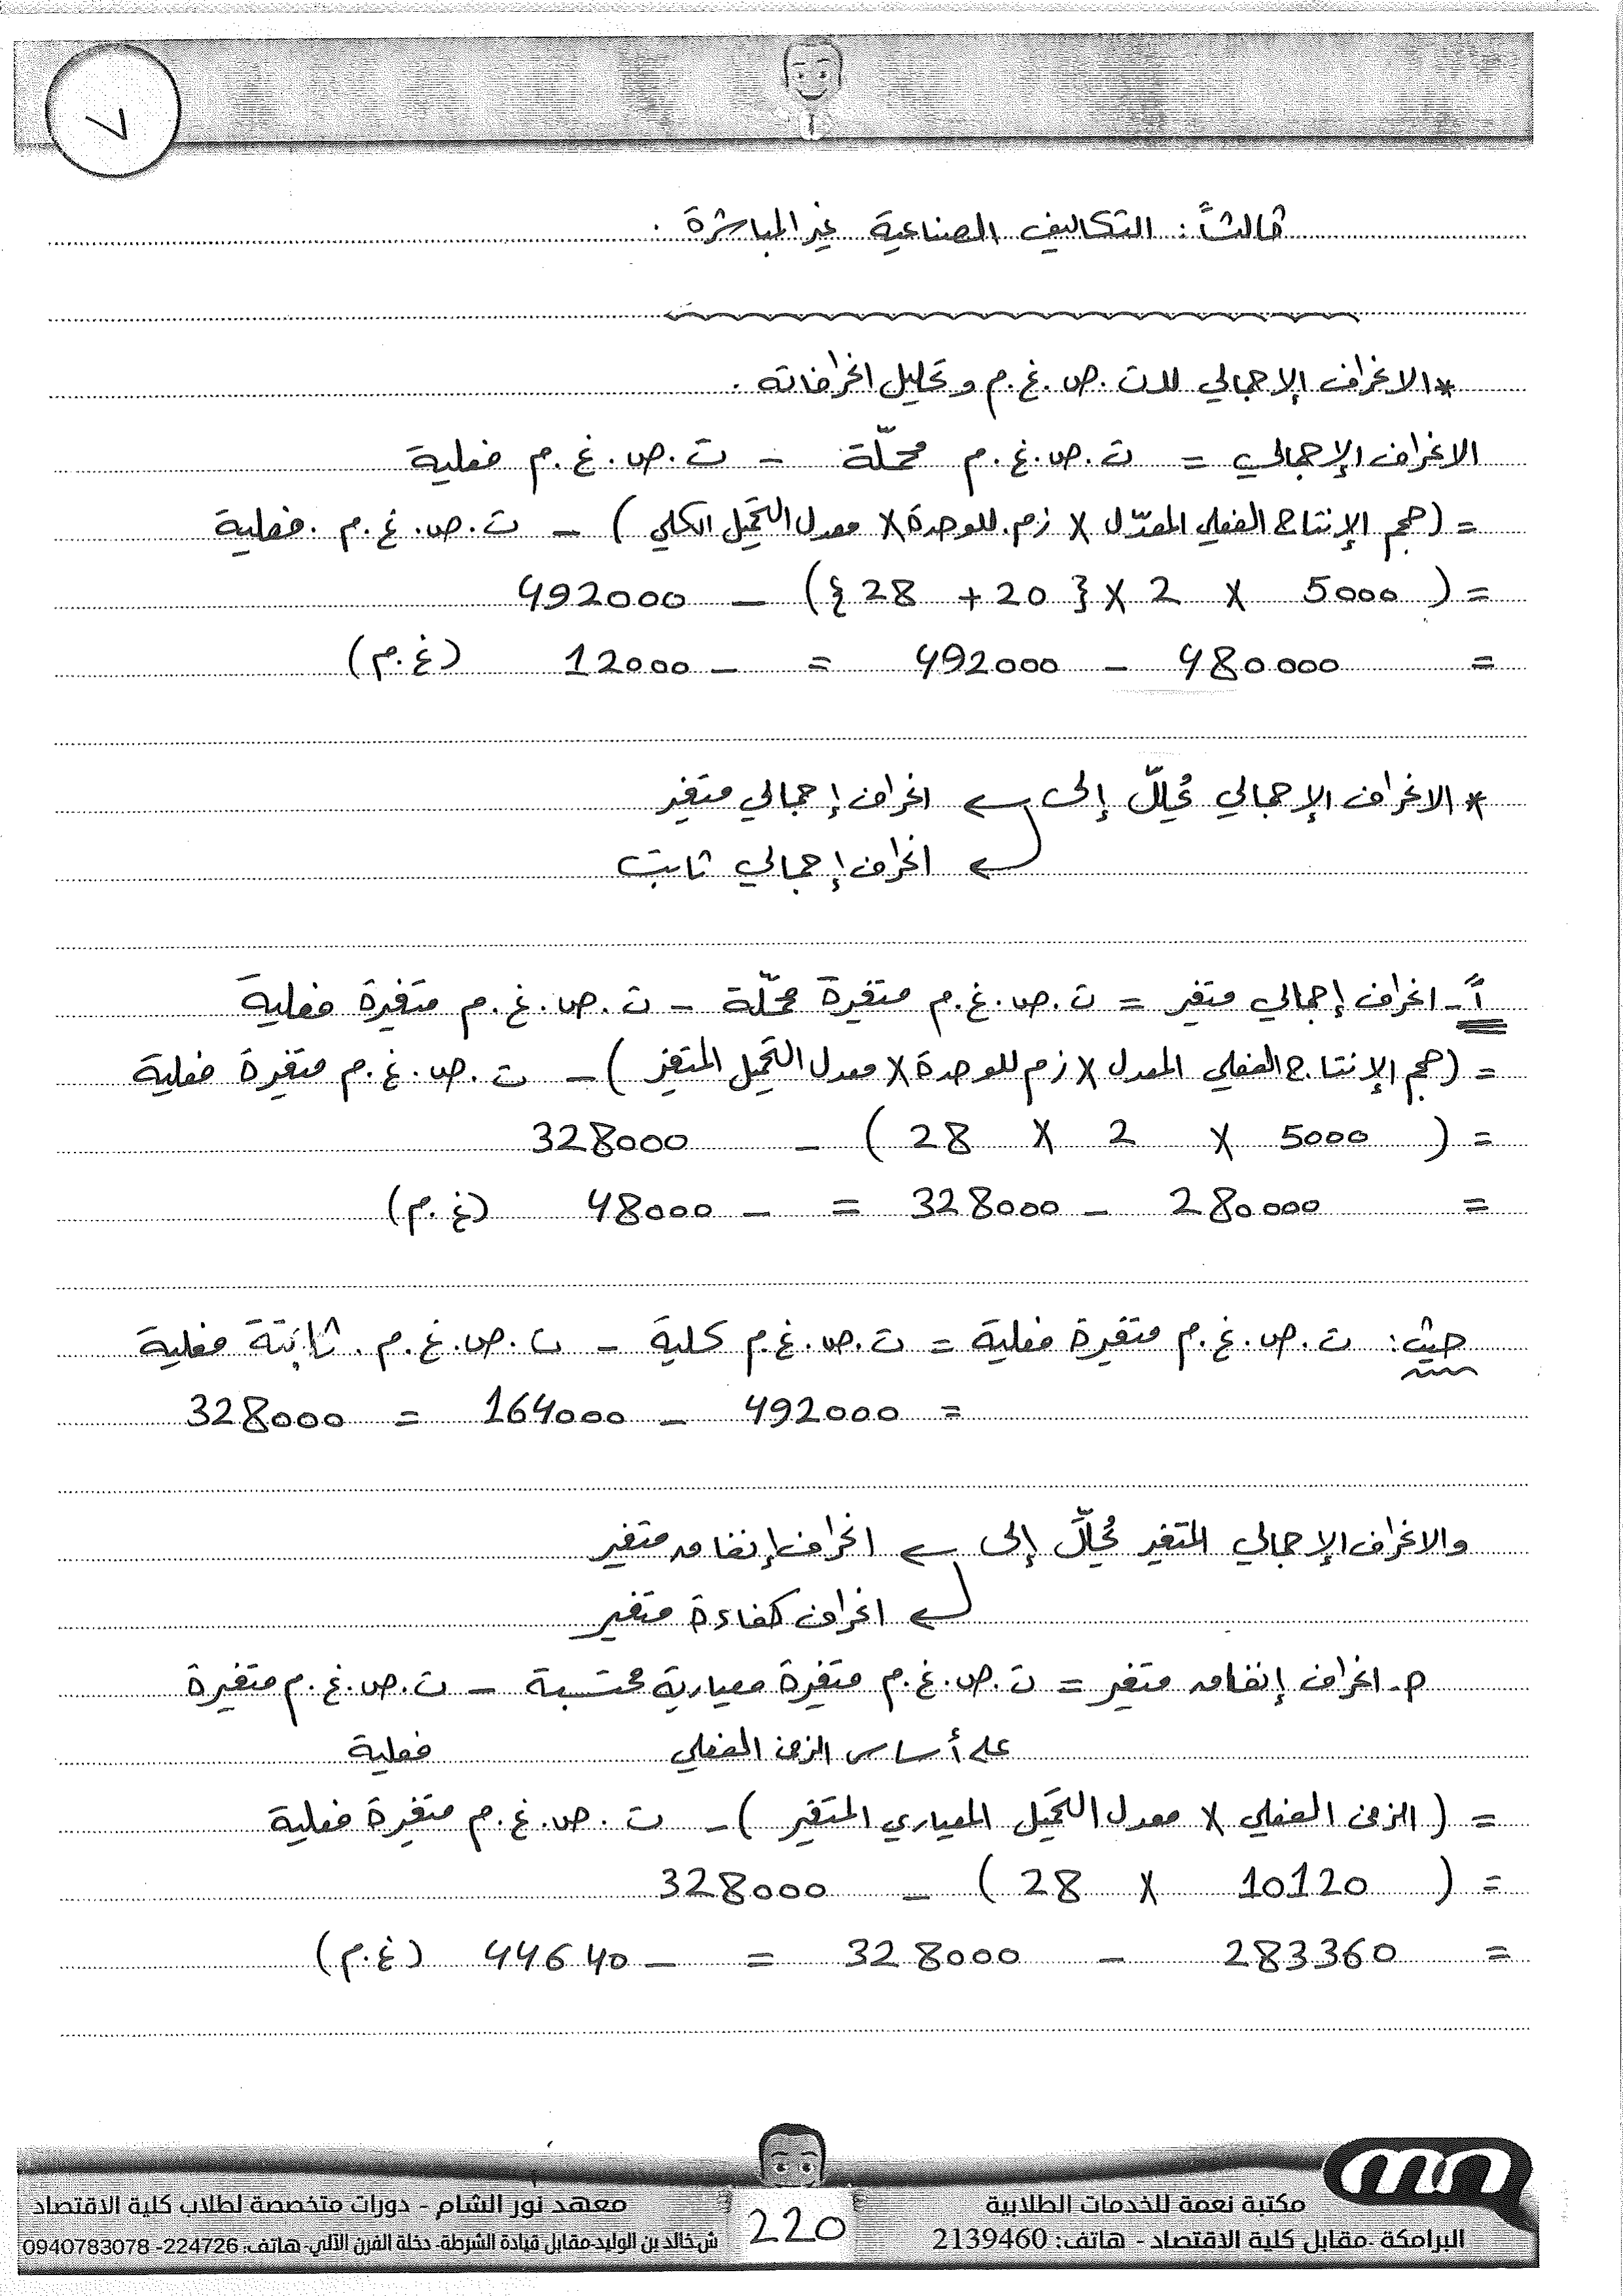 ٧
ثالثاً : التكاليف الصناعية غير المباشرة .
* الانحراف الإجمالي للت . ص . غ . م وتحليل انحرافاته .
الانحراف الإجمالي = ت . ص . غ . م محمّلة - ت . ص . غ . م فعلية
= ( حجم الإنتاج الفعلي المعدّل X ز.م. للوحدة X معدل التحميل الكلي ) - ت . ص . غ . م . فعلية
= ( 5000 X 2 X { 20 + 28 } ) - 492000
= 480000 - 492000 = - 12000 (غ.م)
* الانحراف الإجمالي يُحلّل إلى ← انحراف إجمالي متغير
← انحراف إجمالي ثابت
أً - انحراف إجمالي متغير = ت . ص . غ . م متغيرة محمّلة - ت . ص . غ . م متغيرة فعلية
= ( حجم الإنتاج الفعلي المعدل X ز م للوحدة X معدل التحميل المتغير ) - ت . ص . غ . م متغيرة فعلية
= ( 5000 X 2 X 28 ) - 328000
= 280000 - 328000 = - 48000 (غ.م)
حيث : ت . ص . غ . م متغيرة فعلية = ت . ص . غ . م كلية - ت . ص . غ . م . ثابتة فعلية
= 492000 - 164000 = 328000
والانحراف الإجمالي المتغير يُحلَّل إلى ← انحراف إنفاق متغير
← انحراف كفاءة متغير
م - انحراف إنفاق متغير = ت . ص . غ . م متغيرة معيارية محتسبة - ت . ص . غ . م متغيرة
على أساس الزمن الفعلي فعلية
= ( الزمن الفعلي X معدل التحميل المعياري المتغير ) - ت . ص . غ . م متغيرة فعلية
= ( 10120 X 28 ) - 328000
= 283360 - 328000 = - 44640 (غ.م)
مكتبة نعمة للخدمات الطلابية
البرامكة -مقابل كلية الاقتصاد - هاتف: 2139460
220
معهد نور الشام - دورات متخصصة لطلاب كلية الاقتصاد
ش خالد بن الوليد-مقابل قيادة الشرطة- دخلة الفرن الآلي- هاتف: 224726- 0940783078